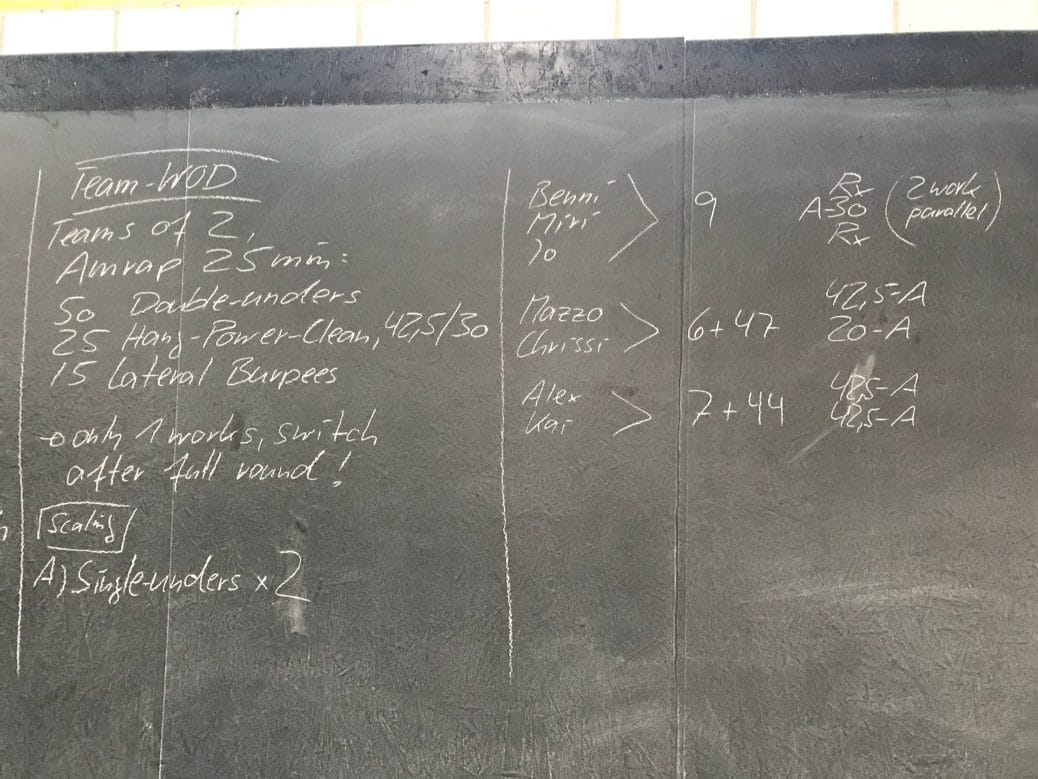 Team-WOD
Teams of 2,
Amrap 25min:
50 Double-unders
25 Hang-Power-Clean, 42,5/30
15 Lateral Burpees
→ only 1 works, switch
after full round!
Scaling
A) Single-unders x 2
Benni
Miri
Jo
9
Rx
A-30
Rx
(2 work
parallel)
Mazzo
Chrissi
6+47
42,5-A
20-A
Alex
Kai
7+44
42,5-A
42,5-A